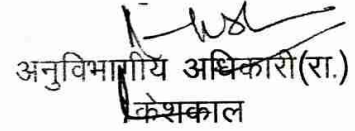 अनुविभागीय अधिकारी(रा.)
केशकाल